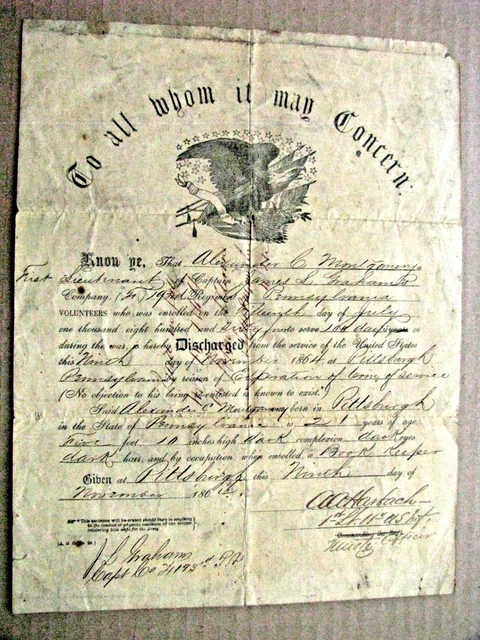 To all whom it may Concern:
Know ye, That Alexander C Montgomery a
First Lieutenant of Captain James L. Graham's
Company, (F,) 193d Regiment of Pennsylvania
VOLUNTEERS who was enrolled on the day of July
one thousand eight hundred and Sixty four to serve 100 days years or
during the war, is hereby Discharged from the service of the United States
this Ninth day of November 1864, at Pittsburgh
Pennsylvania by reason of Expiration of term of service
(No objection to his being re-enlisted is known to exist.*)
Said Alexander C Montgomery was born in Pittsburgh
in the State of Pennsylvania is 21 years of age,
Five feet 10 inches high, dark complexion, dark eyes,
dark hair, and by occupation, when enrolled, a Book Keeper
Given at Pittsburgh this Ninth day of
November 1864.
*This sentence will be erased should there be anything
in the conduct or physical condition of the soldier
rendering him unfit for the Army.
J L Graham
Capt Co F 193d P.V.
1st Lt. 11th U.S. Inf.
Officer